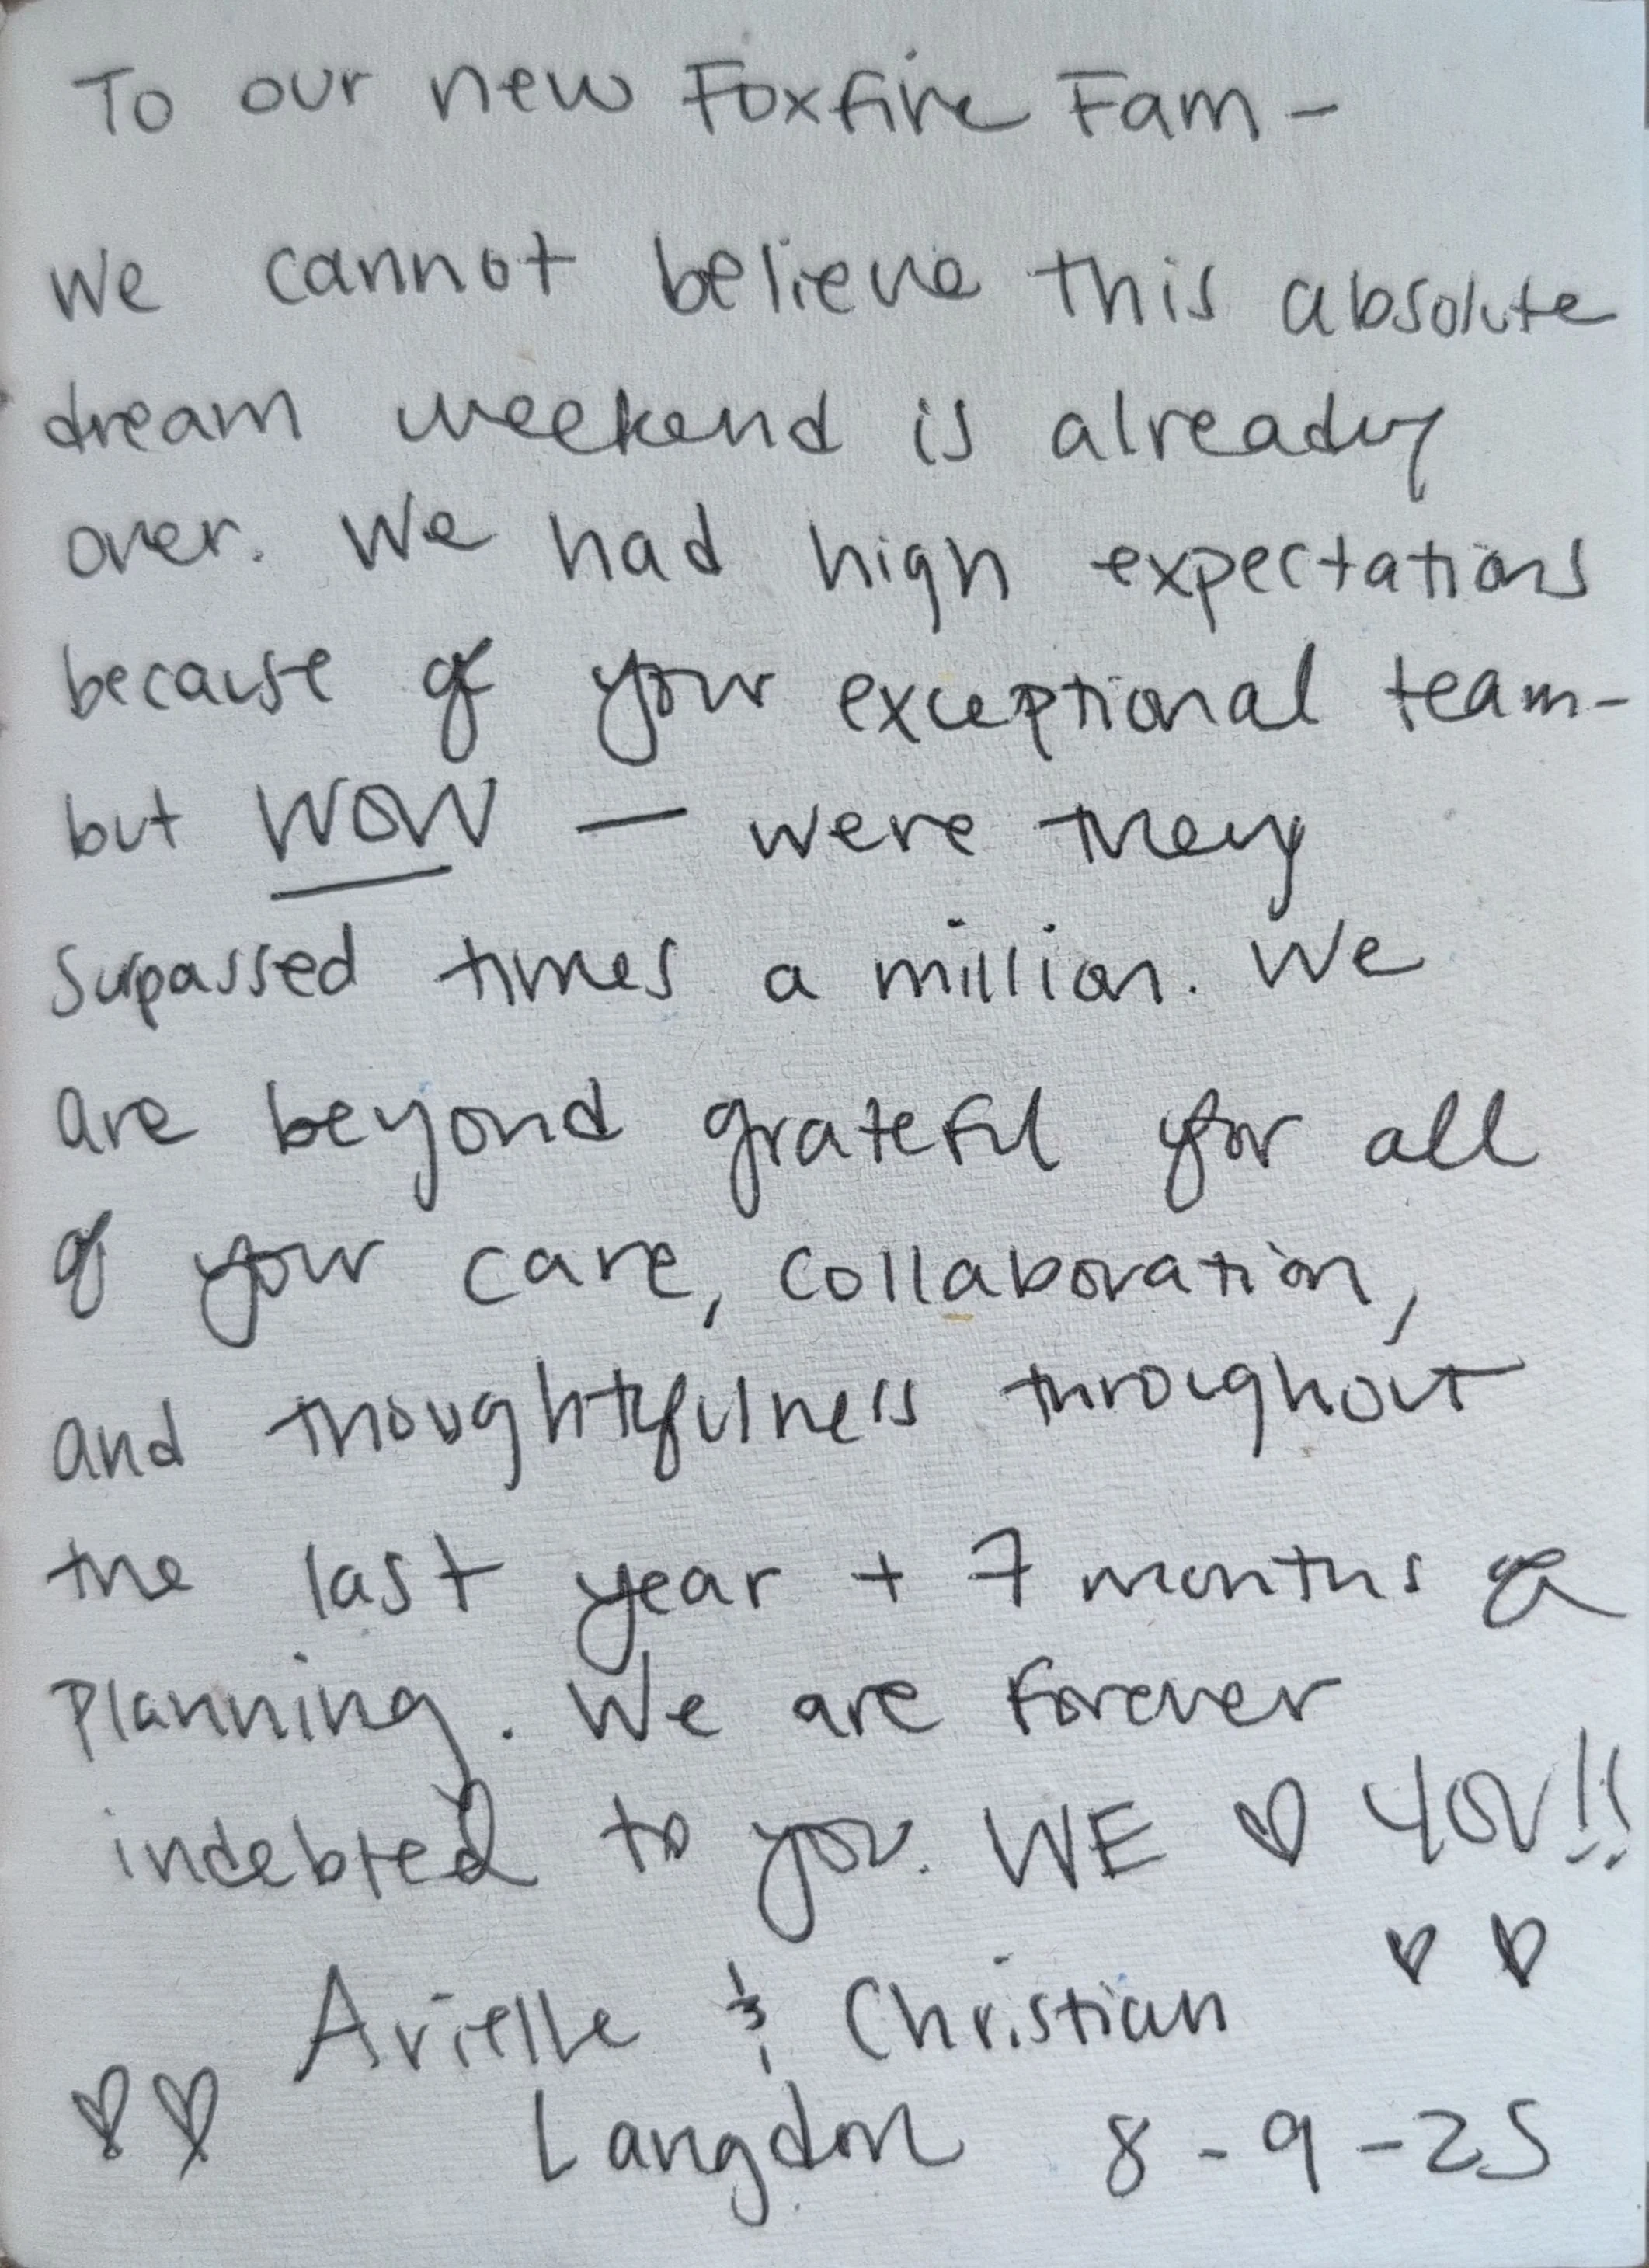 To our new Foxfire Fam -
We cannot believe this absolute
dream weekend is already
over. We had high expectations
because of your exceptional team-
but WOW — were they
surpassed times a million. We
are beyond grateful for all
of your care, collaboration,
and thoughtfulness throughout
the last year + 7 months of
planning. We are forever
indebted to you. WE ♡ YOU!!
Arielle & Christian
Langdon 8-9-25